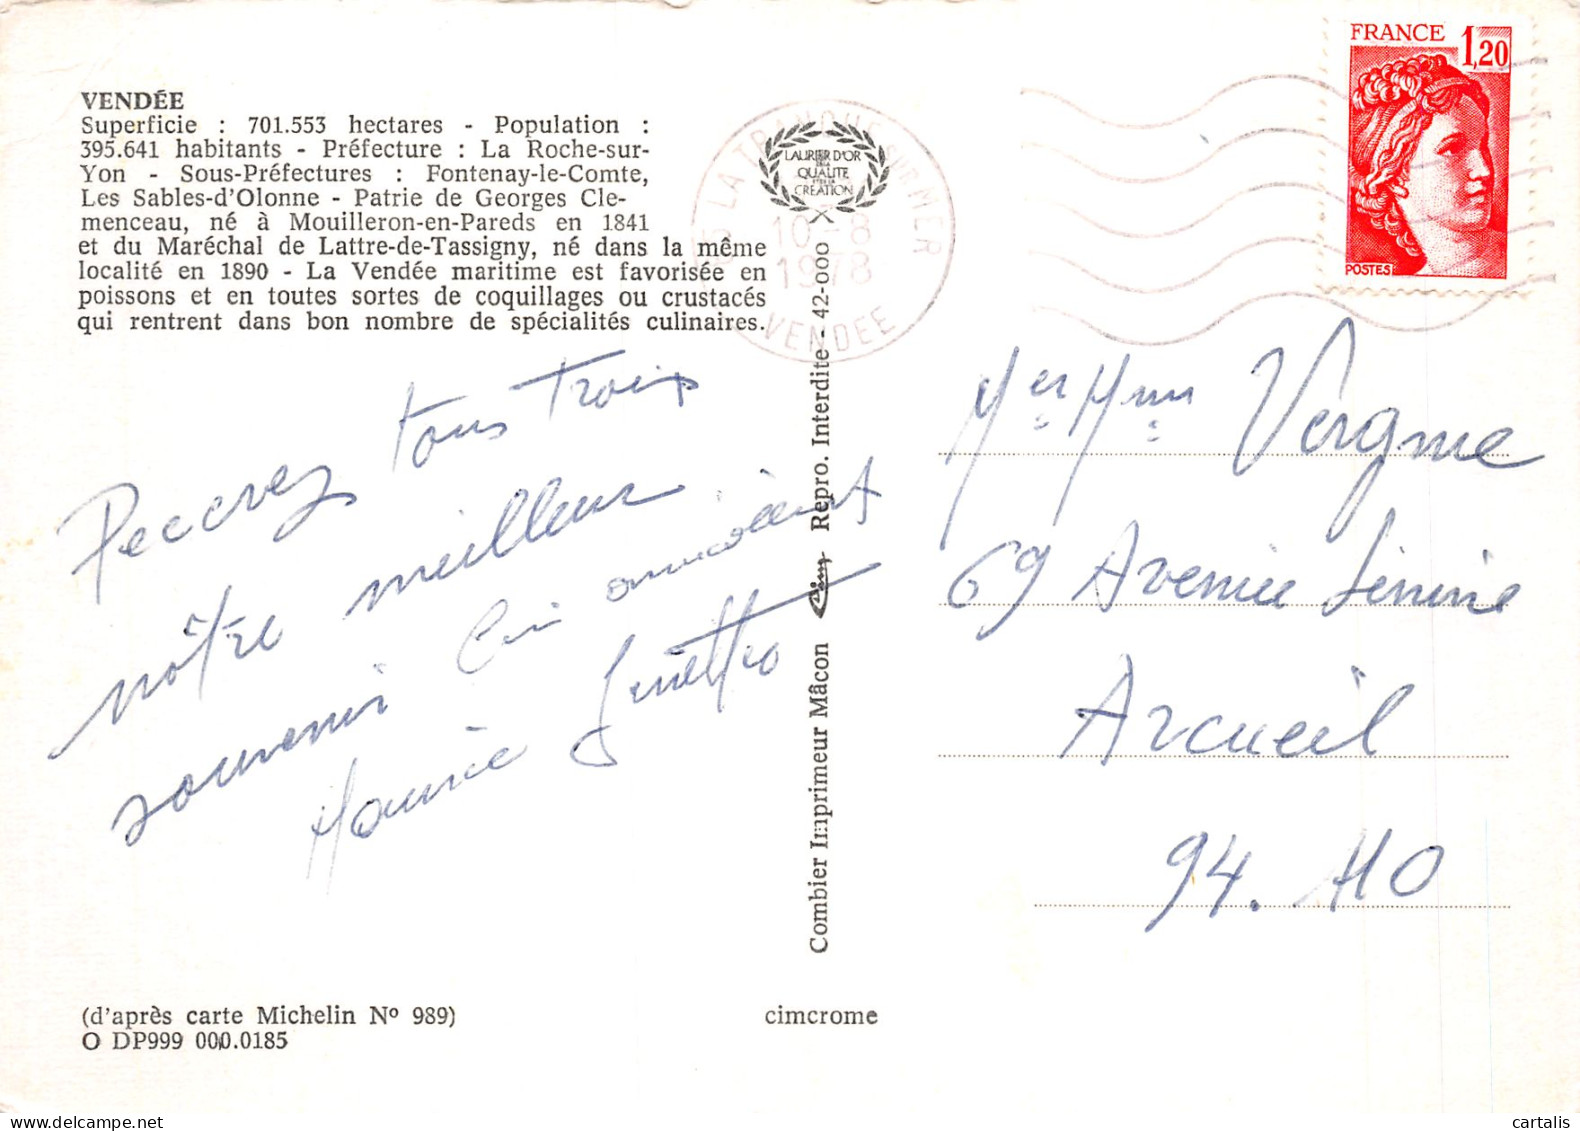 VENDÉE
Superficie : 701.553 hectares - Population :
395.641 habitants - Préfecture : La Roche-sur-
Yon - Sous-Préfectures : Fontenay-le-Comte,
Les Sables-d'Olonne - Patrie de Georges Cle-
menceau, né à Mouilleron-en-Pareds en 1841
et du Maréchal de Lattre-de-Tassigny, né dans la même
localité en 1890 - La Vendée maritime est favorisée en
poissons et en toutes sortes de coquillages ou crustacés
qui rentrent dans bon nombre de spécialités culinaires.
LA TRANCHE SUR MER
10-8
1978
VENDEE
LAURIER D'OR
DE LA
QUALITÉ
CREATION
FRANCE 1,20
POSTES
tous trois
notre meilleur
souvenir
Maurice Ginette
Combier Imprimeur Mâcon Repro. Interdite - 42-000
Mer Mme Vergne
69 Avenue Lénine
Arcueil
94.110
(d'après carte Michelin Nº 989)
O DP999 000.0185
cimcrome
cartalis